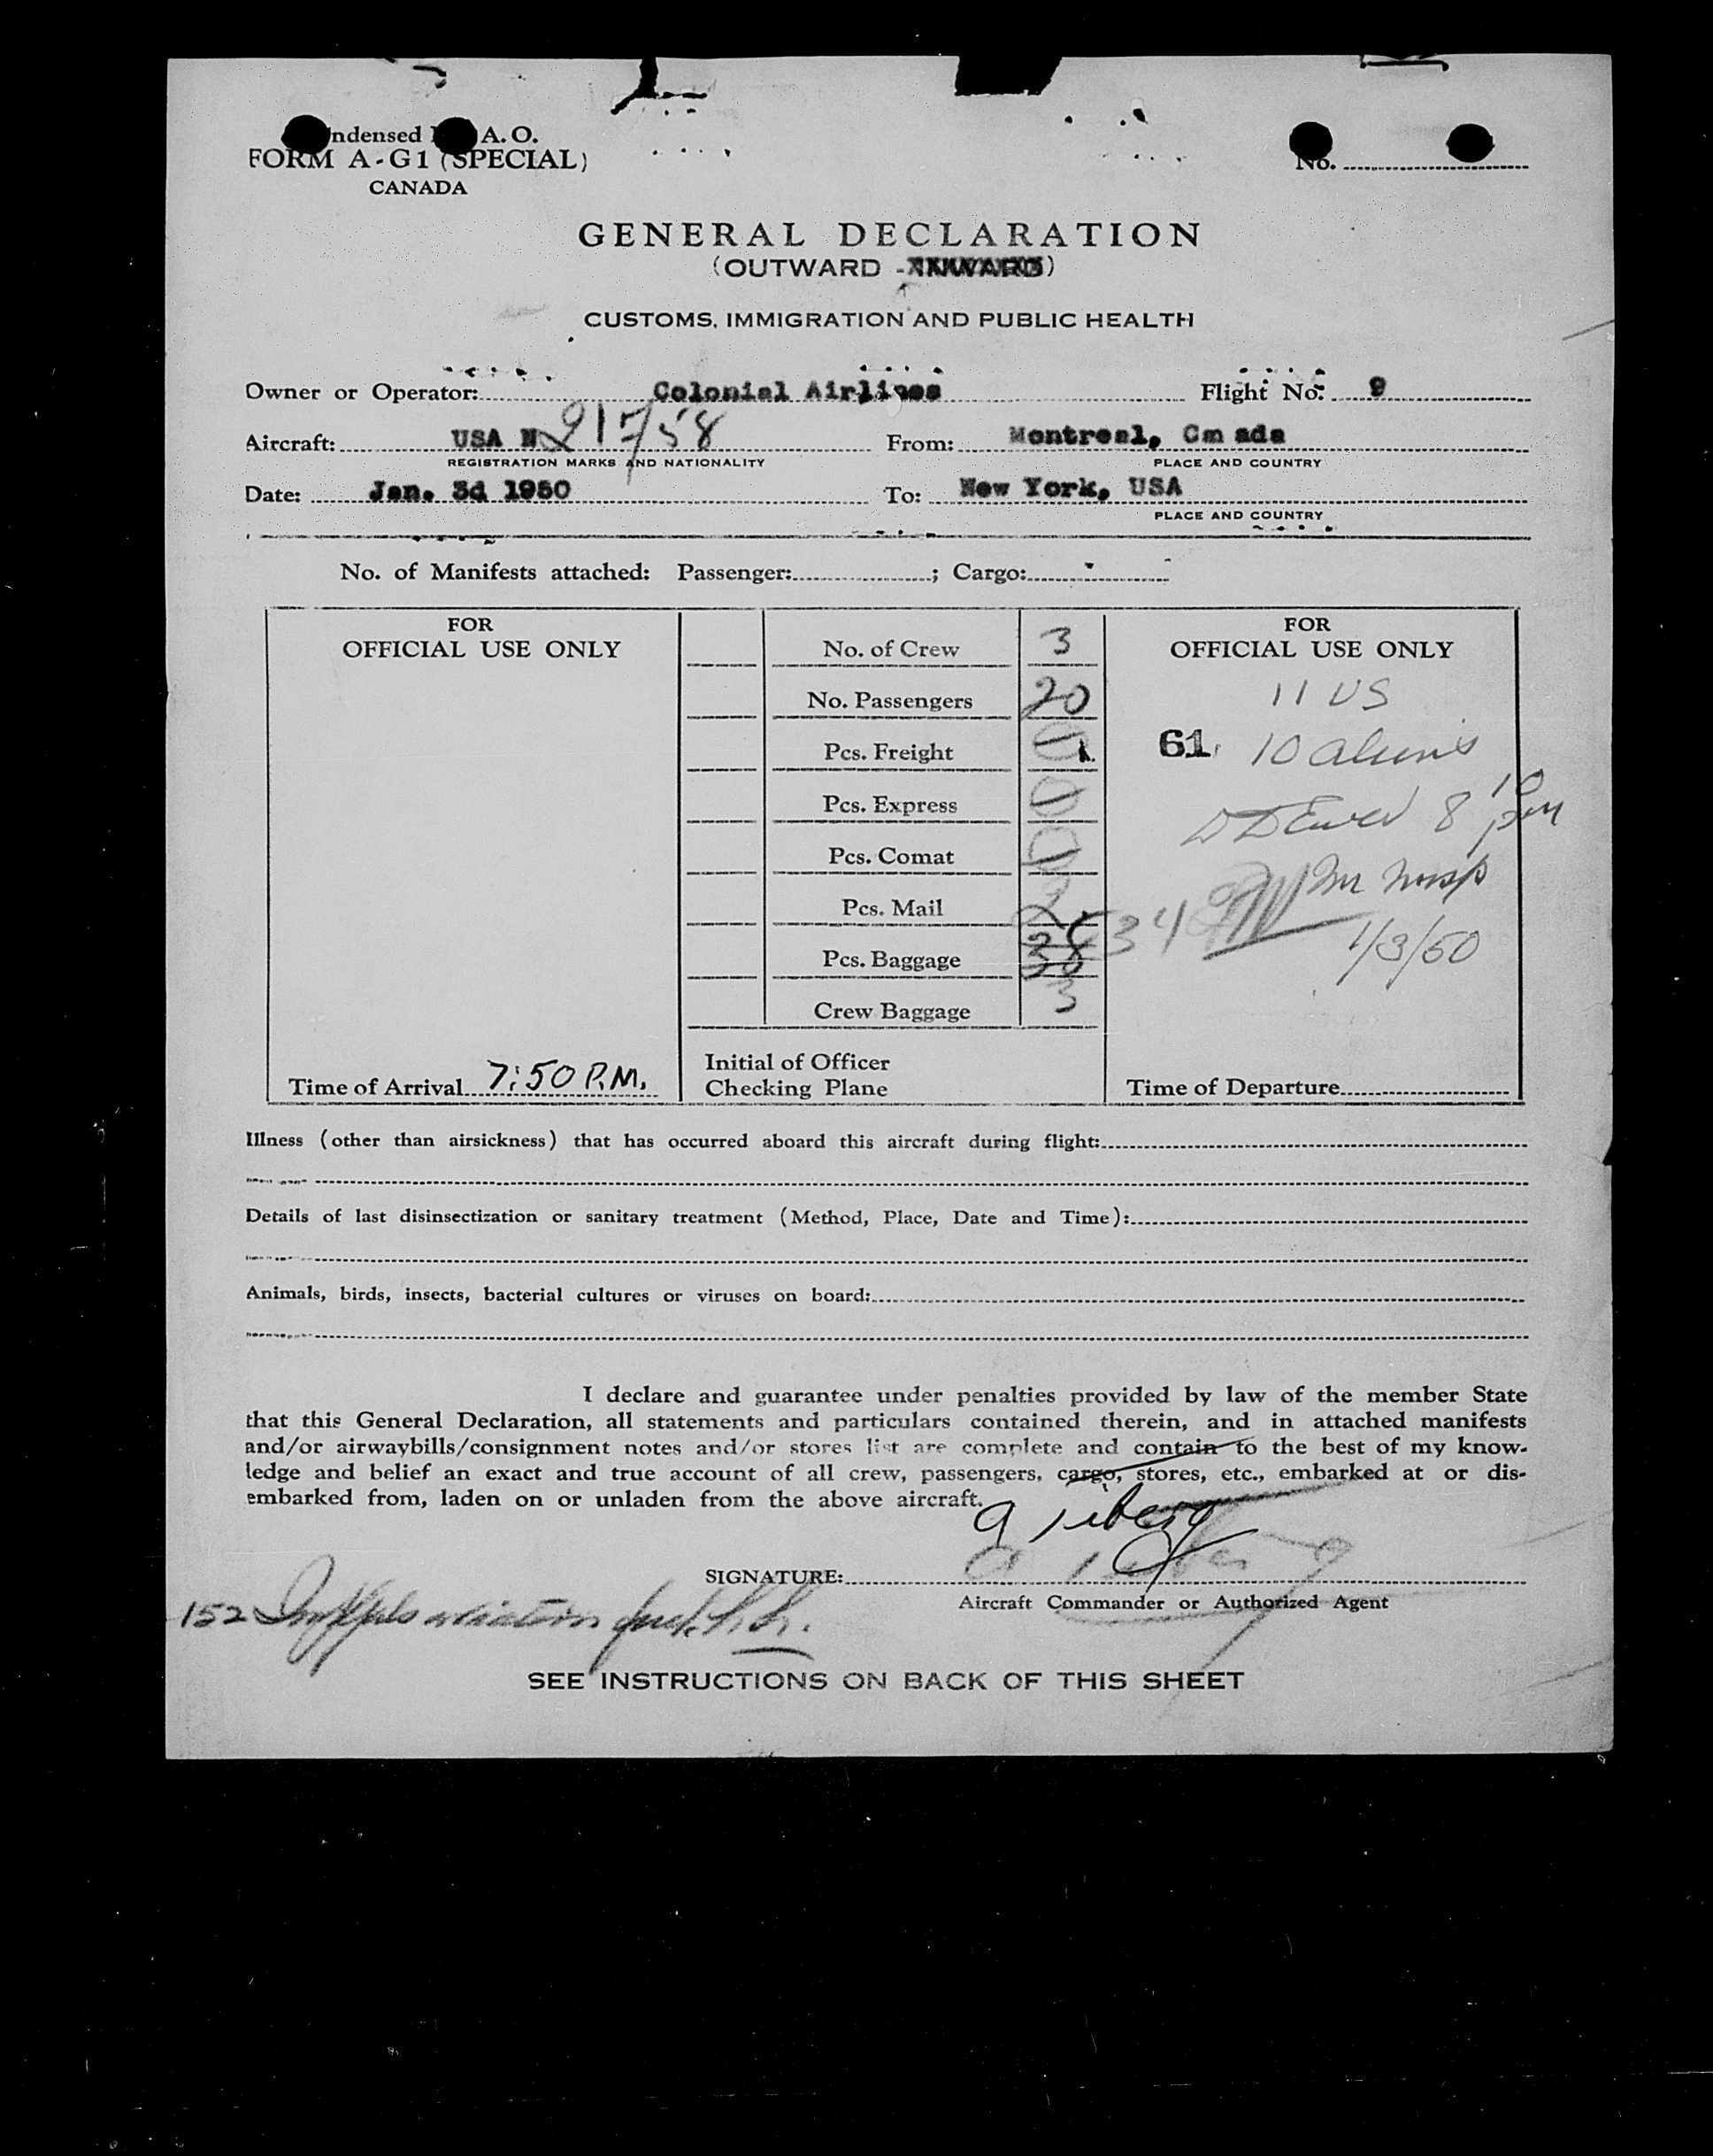 ndensed A. O.
FORM A-G1 (SPECIAL)
CANADA
No.
GENERAL DECLARATION
(OUTWARD -
CUSTOMS, IMMIGRATION AND PUBLIC HEALTH
Owner or Operator: Colonial Airlines Flight No: 9
Aircraft: USA N 21758 From: Montreal, Cm ada
REGISTRATION MARKS AND NATIONALITY PLACE AND COUNTRY
Date: Jan. 3d 1950 To: New York, USA
PLACE AND COUNTRY
No. of Manifests attached: Passenger: ; Cargo:
FOR
OFFICIAL USE ONLY
Time of Arrival 7:50 P.M.
No. of Crew 3
No. Passengers 20
Pcs. Freight
Pcs. Express
Pcs. Comat
Pcs. Mail
Pcs. Baggage
Crew Baggage 3
Initial of Officer
Checking Plane
FOR
OFFICIAL USE ONLY
11 US
61, 10 aliens
8 10 pm
34
1/3/50
Time of Departure
Illness (other than airsickness) that has occurred aboard this aircraft during flight:
Details of last disinsectization or sanitary treatment (Method, Place, Date and Time):
Animals, birds, insects, bacterial cultures or viruses on board:
I declare and guarantee under penalties provided by law of the member State
that this General Declaration, all statements and particulars contained therein, and in attached manifests
and/or airwaybills/consignment notes and/or stores list are complete and contain to the best of my know-
ledge and belief an exact and true account of all crew, passengers, cargo, stores, etc., embarked at or dis-
embarked from, laden on or unladen from the above aircraft.
SIGNATURE:
Aircraft Commander or Authorized Agent
152
SEE INSTRUCTIONS ON BACK OF THIS SHEET